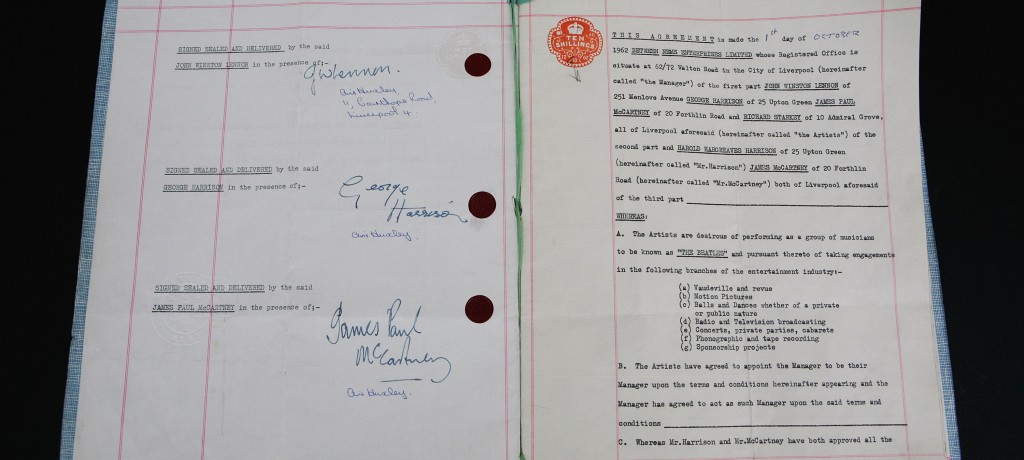 SIGNED SEALED AND DELIVERED by the said
JOHN WINSTON LENNON in the presence of:-
JWLennon.
4,
Liverpool 4.
SIGNED SEALED AND DELIVERED by the said
GEORGE HARRISON in the presence of:-
George
Harrison
SIGNED SEALED AND DELIVERED by the said
JAMES PAUL McCARTNEY in the presence of;-
James Paul
McCartney
TEN
SHILLINGS
THIS AGREEMENT is made the 1st day of OCTOBER
1962 BETWEEN NEMS ENTERPRISES LIMITED whose Registered Office is
situate at 62/72 Walton Road in the City of Liverpool (hereinafter
called "the Manager") of the first part JOHN WINSTON LENNON of
251 Menlove Avenue GEORGE HARRISON of 25 Upton Green JAMES PAUL
McCARTNEY of 20 Forthlin Road and RICHARD STARKEY of 10 Admiral Grove,
all of Liverpool aforesaid (hereinafter called "the Artists") of the
second part and HAROLD HARGREAVES HARRISON of 25 Upton Green
(hereinafter called "Mr.Harrison") JAMES McCARTNEY of 20 Forthlin
Road (hereinafter called "Mr.McCartney") both of Liverpool aforesaid
of the third part
WHEREAS:
A. The Artists are desirous of performing as a group of musicians
to be known as "THE BEATLES" and pursuant thereto of taking engagements
in the following branches of the entertainment industry:-
(a) Vaudeville and revue
(b) Motion Pictures
(c) Balls and Dances whether of a private
or public nature
(d) Radio and Television broadcasting
(e) Concerts, private parties, cabarets
(f) Phonographic and tape recording
(g) Sponsorship projects
B. The Artists have agreed to appoint the Manager to be their
Manager upon the terms and conditions hereinafter appearing and the
Manager has agreed to act as such Manager upon the said terms and
conditions
C. Whereas Mr.Harrison and Mr.McCartney have both approved all the